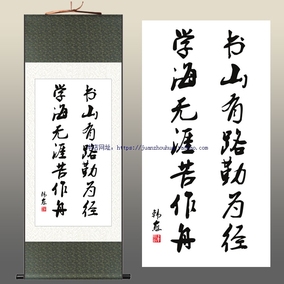 书山有路勤为径
学海无涯苦作舟
韩愈
书山有路勤为径
学海无涯苦作舟
韩愈